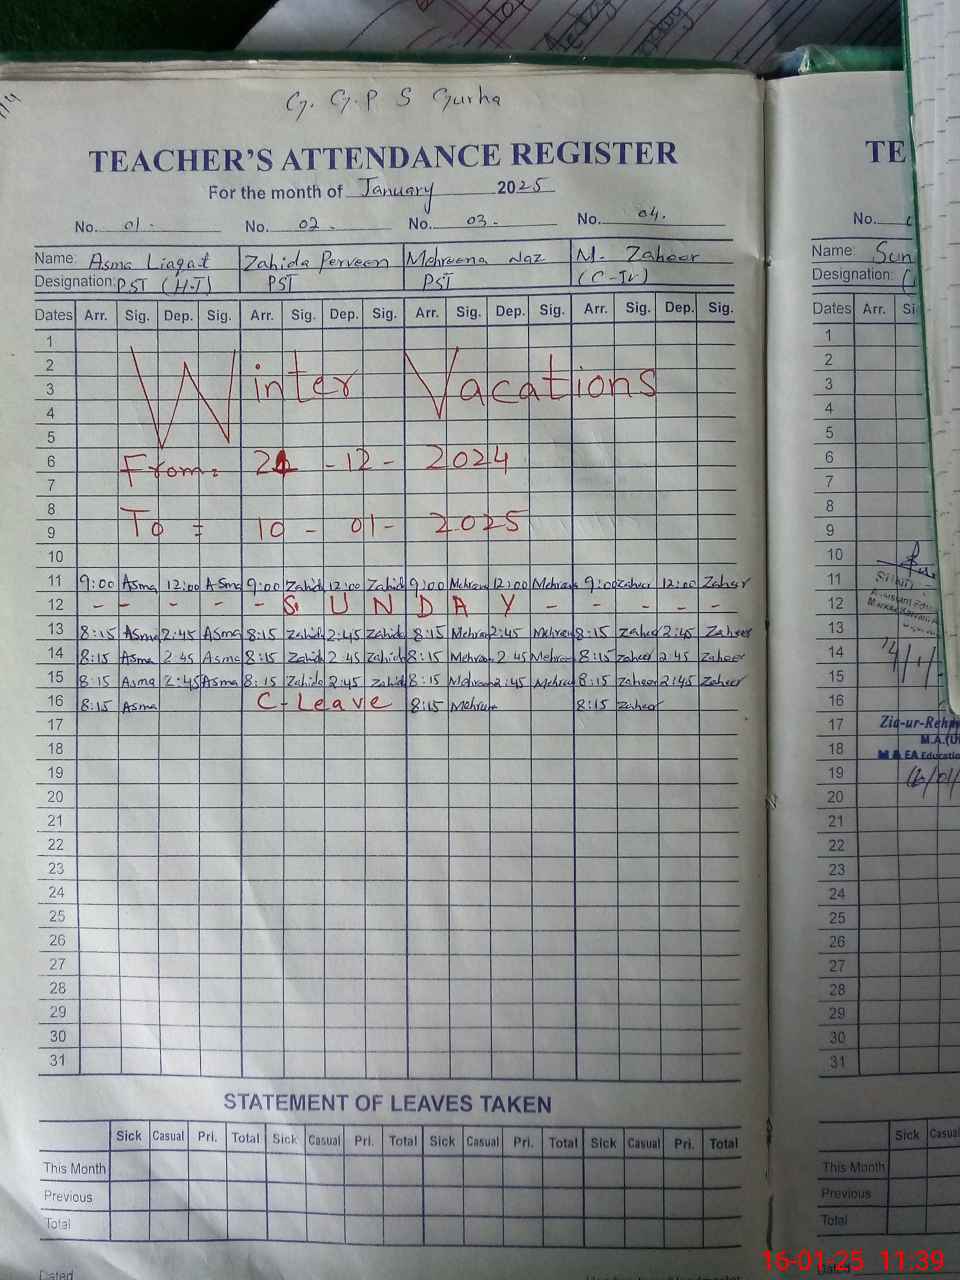 G. G. P S Gurha
TEACHER'S ATTENDANCE REGISTER
For the month of January 2025
No. 01. No. 02. No. 03. No. 04.
Name: Asma Liaqat Zahida Perveen Mehreena Naz M. Zaheer
Designation: PST (H.T) PST PST (C-IV)
Dates Arr. Sig. Dep. Sig. Arr. Sig. Dep. Sig. Arr. Sig. Dep. Sig. Arr. Sig. Dep. Sig.
1
2
3 Winter Vacations
4
5
6 From = 21 - 12 - 2024
7
8
9 To = 10 - 01 - 2025
10
11 9:00 Asma 12:00 Asma 9:00 Zahid 12:00 Zahid 9:00 Mehreen 12:00 Mehreen 9:00 Zaheer 12:00 Zaheer
12 - - - - - S U N D A Y - - - - -
13 8:15 Asma 2:45 Asma 8:15 Zahid 2:45 Zahid 8:15 Mehreen 2:45 Mehreen 8:15 Zaheer 2:45 Zaheer
14 8:15 Asma 2:45 Asma 8:15 Zahid 2:45 Zahid 8:15 Mehreen 2:45 Mehreen 8:15 Zaheer 2:45 Zaheer
15 8:15 Asma 2:45 Asma 8:15 Zahida 2:45 Zahid 8:15 Mehreen 2:45 Mehreen 8:15 Zaheer 2:45 Zaheer
16 8:15 Asma C-Leave 8:15 Mehreen 8:15 Zaheer
17
18
19
20
21
22
23
24
25
26
27
28
29
30
31
STATEMENT OF LEAVES TAKEN
Sick Casual Pri. Total Sick Casual Pri. Total Sick Casual Pri. Total Sick Casual Pri. Total
This Month
Previous
Total
Dated
TE
No.
Name: Sun
Designation: (
Dates Arr. Si
1
2
3
4
5
6
7
8
9
10
11
12
13
14
15
16
17 Zia-ur-Rehm
18 M.A.(U
M & EA Education
19 16/01/
20
21
22
23
24
25
26
27
28
29
30
31
Sick Casual
This Month
Previous
Total
Dated
16-01-25 11:39